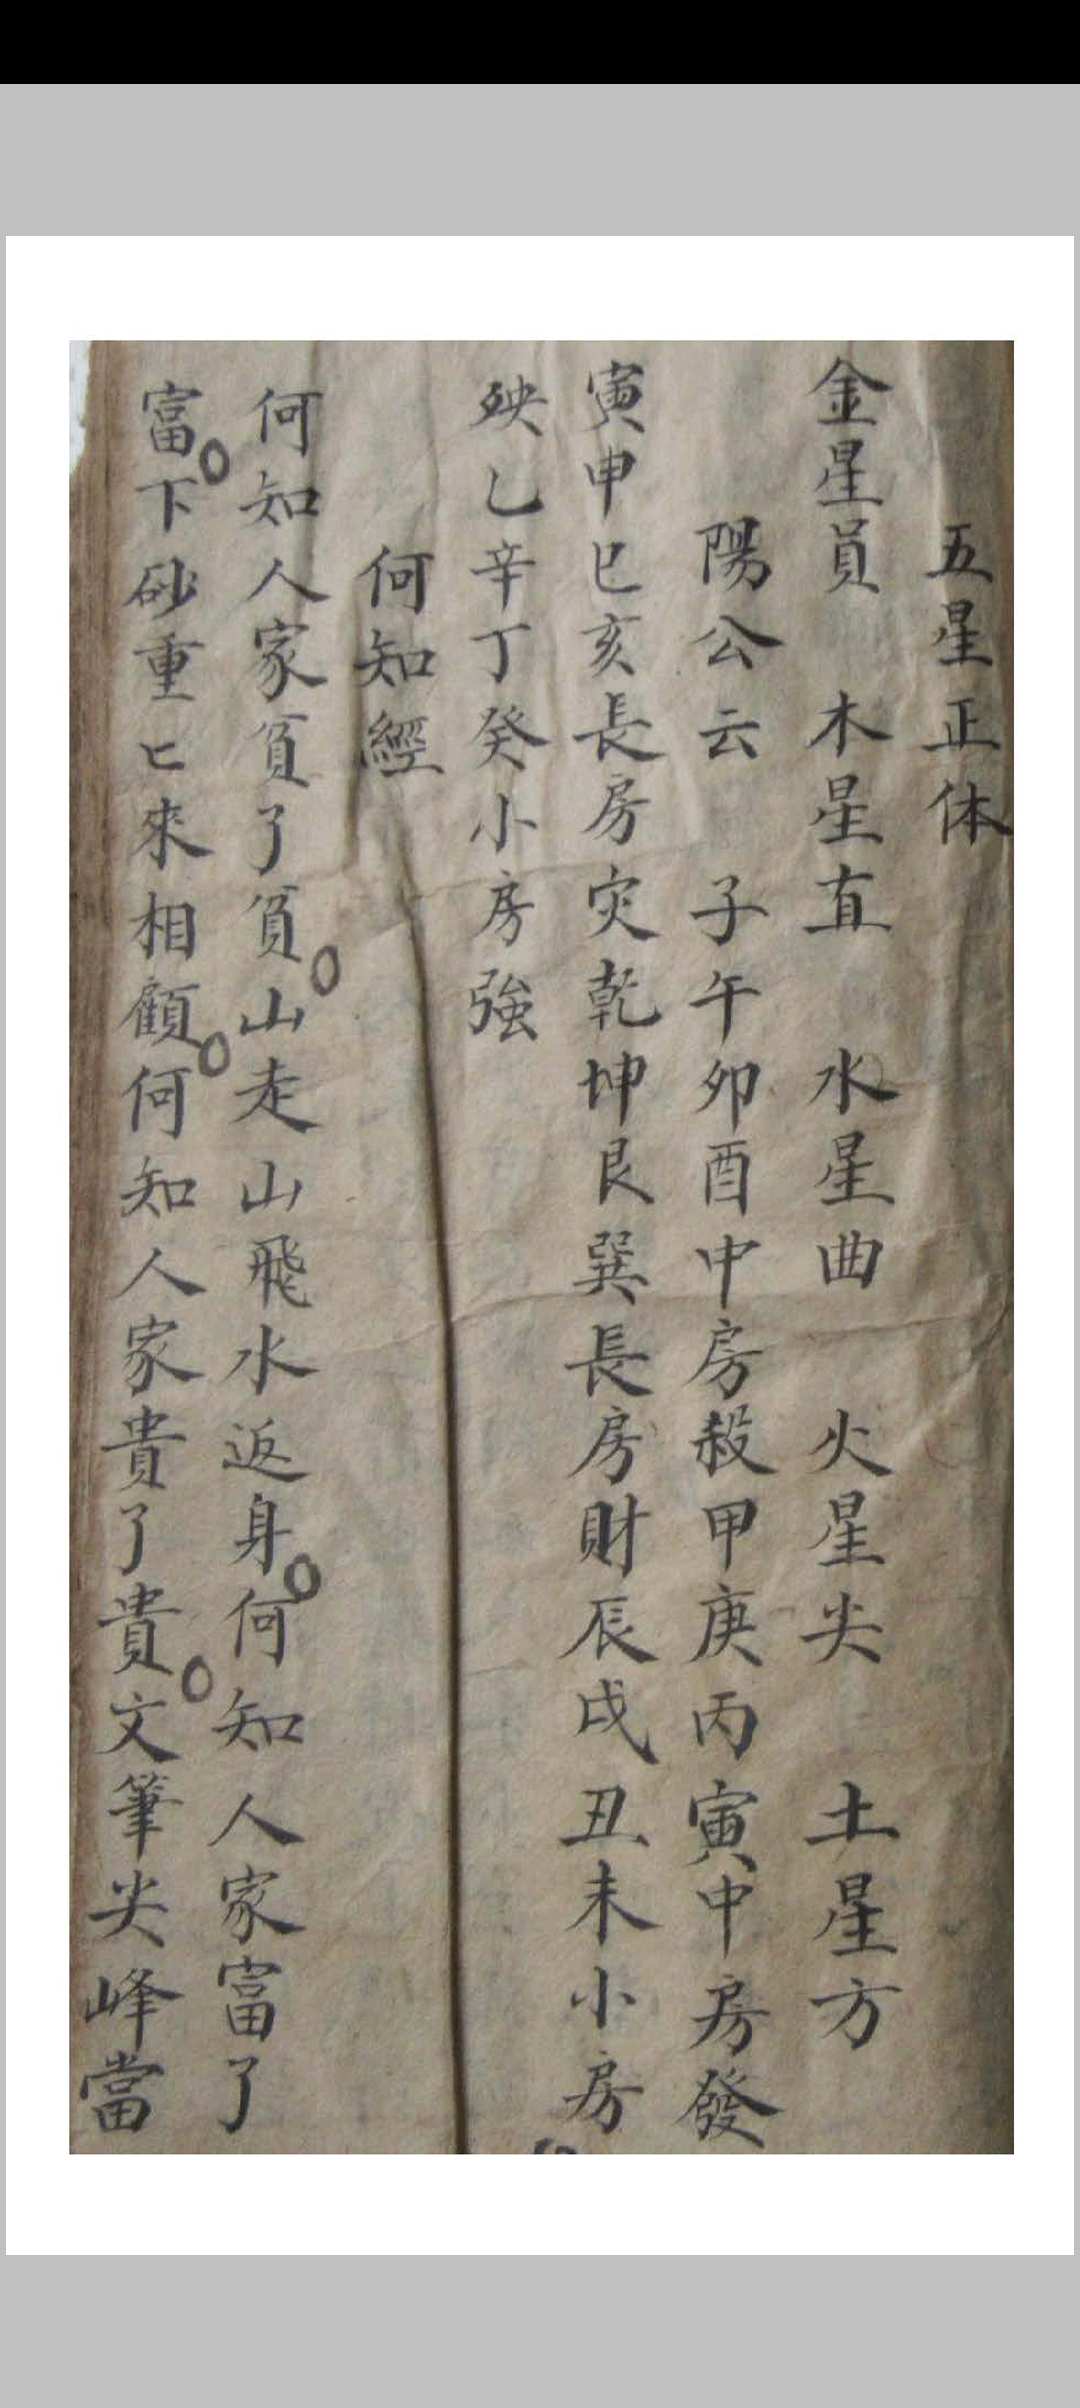 五星正体
金星員　木星直　水星曲　火星尖　土星方
陽公云　子午卯酉中房殺甲庚丙寅中房發
寅申巳亥長房灾乾坤艮巽長房財辰戌丑未小房
殃乙辛丁癸小房強
何知經
何知人家貧了貧。山走山飛水返身。何知人家富了
富。下砂重匕來相顧。何知人家貴了貴。文筆尖峰當